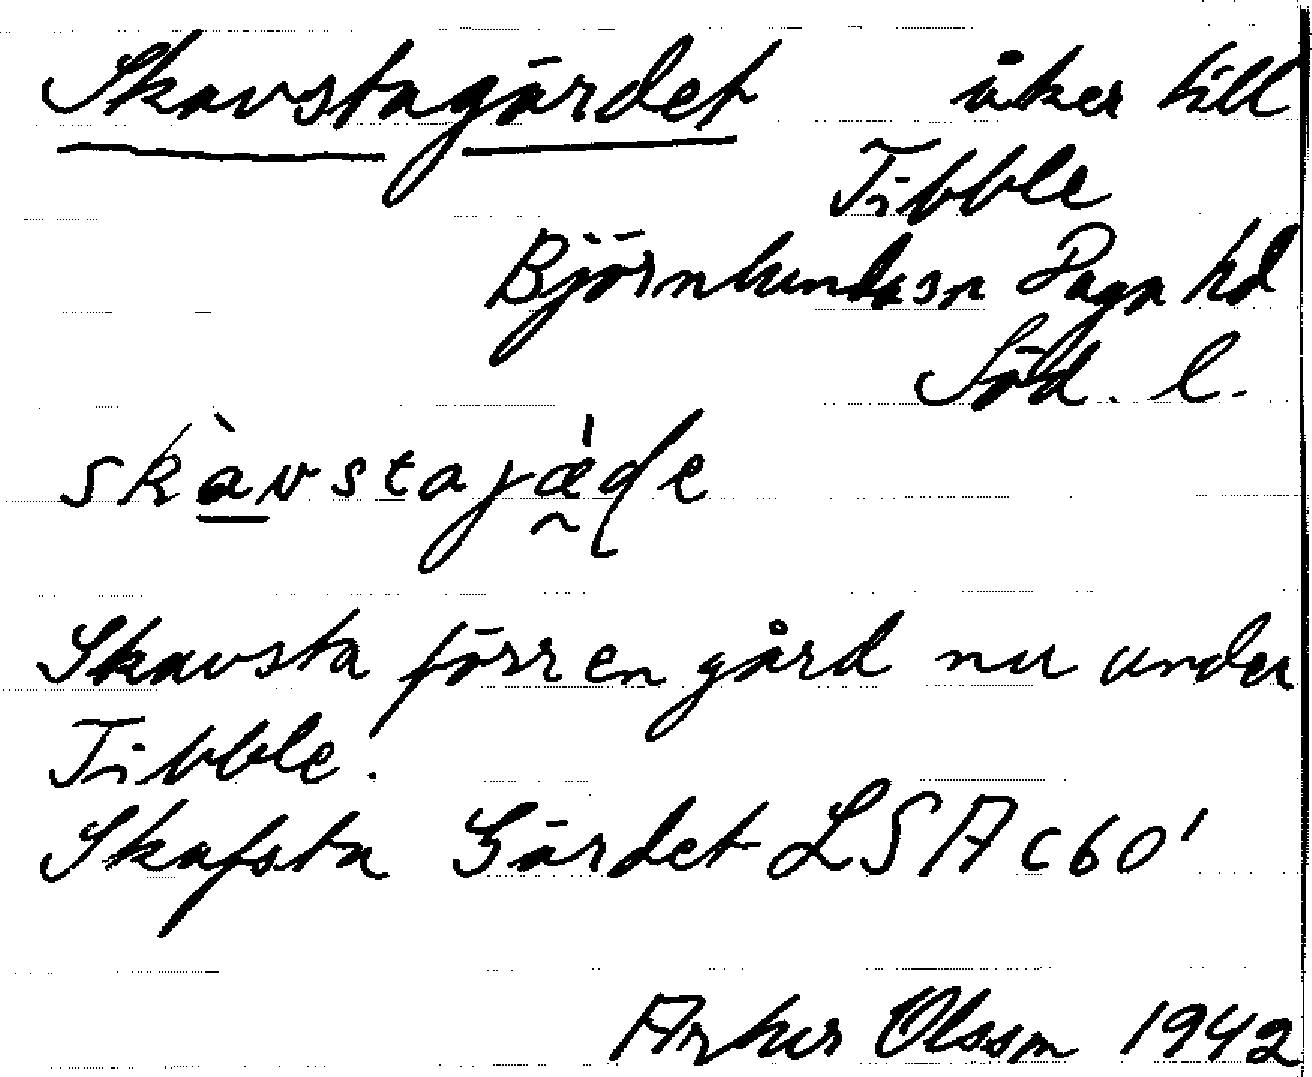 Skavstagärdet åker till
Tibble
Björnlunda sn Daga hd
Söd. l.
skàvstajæ̀ɖe
Skavsta förr en gård nu under
Tibble.
Skafsta Gärdet LSA C60'
Arthur Olsson 1942